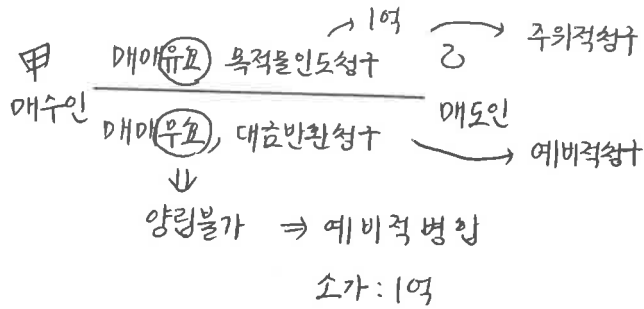 1억
甲 매매유효 목적물인도청구 乙 주위적청구
매수인 매도인
매매무효, 대금반환청구 예비적청구
⇓
양립불가 ⇒ 예비적 병합
소가 : 1억